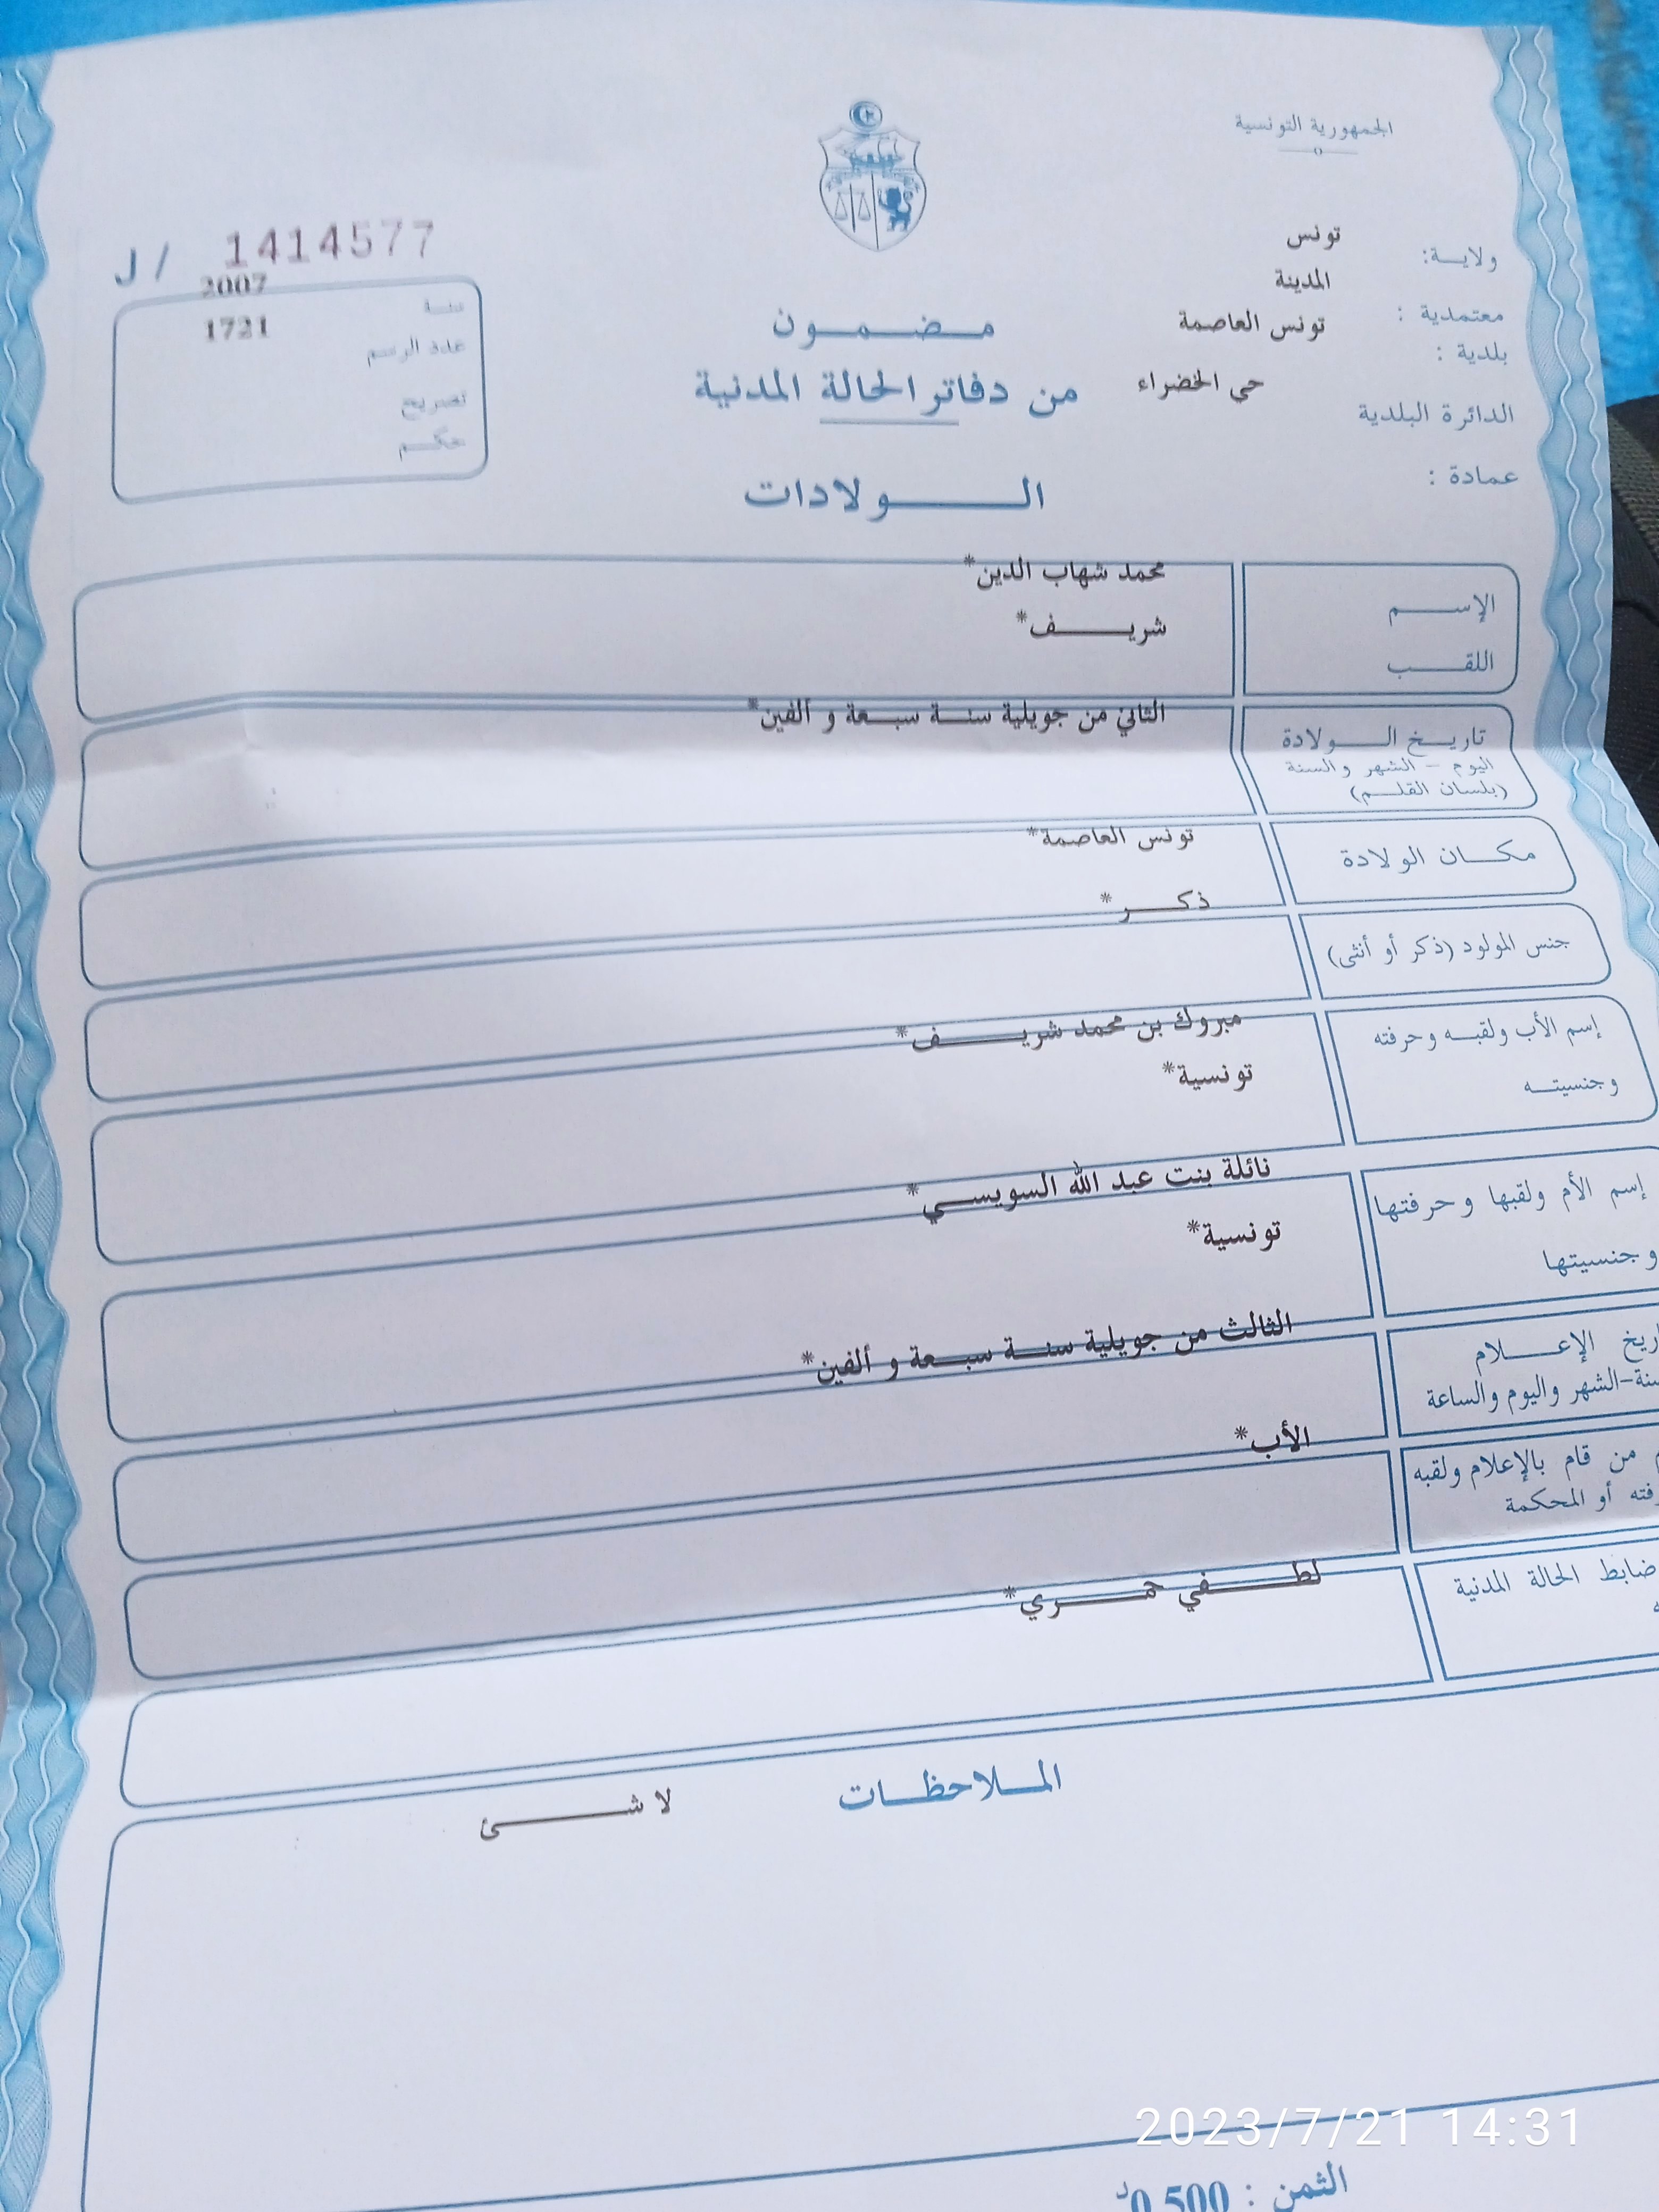 الجمهورية التونسية
ولاية: تونس
معتمدية : المدينة
بلدية : تونس العاصمة
الدائرة البلدية حي الخضراء
عمادة :
J / 1414577
سنة 2007
عدد الرسم 1721
تصريح
حكم
مضمون
من دفاتر الحالة المدنية
الولادات
الإسم محمد شهاب الدين*
اللقب شريف*
تاريخ الولادة الثاني من جويلية سنة سبعة و ألفين*
اليوم – الشهر والسنة
(بلسان القلم)
مكان الولادة تونس العاصمة*
جنس المولود (ذكر أو أنثى) ذكر*
إسم الأب ولقبه وحرفته مبروك بن محمد شريف*
وجنسيته تونسية*
إسم الأم ولقبها وحرفتها نائلة بنت عبد الله السويسي*
وجنسيتها تونسية*
الإعلام الثالث من جويلية سنة سبعة و ألفين*
الشهر واليوم والساعة
من قام بالإعلام ولقبه الأب*
أو المحكمة
ضابط الحالة المدنية لطفي حمري*
الملاحظات
لا شئ
2023/7/21 14:31
الثمن : 0,500د